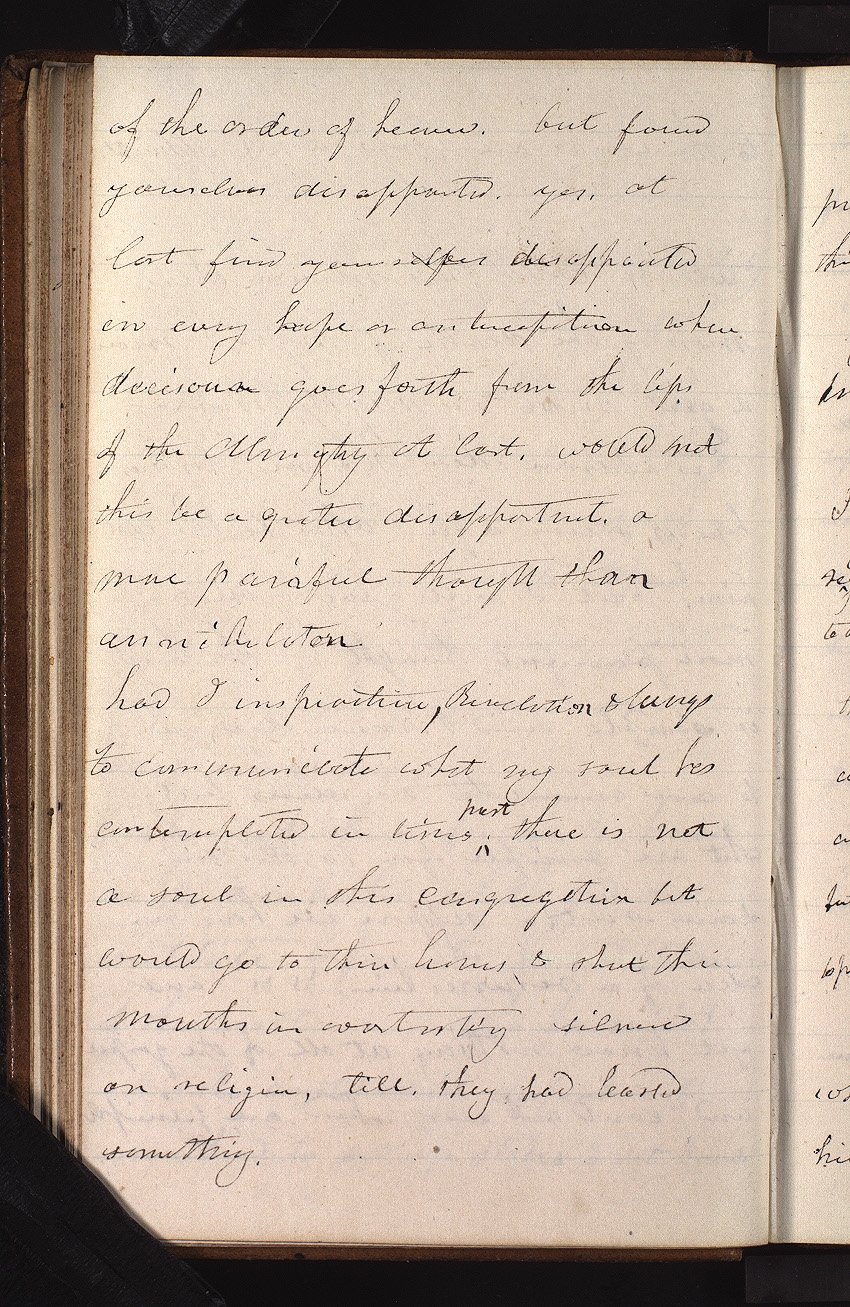 of the order of heaven. but found
yourselves disappointed. yes. at
last find yourselves disappointed
in every hope or anticipation when
decisions goes forth from the lips
of the Almighty at last. would not
this be a greater disappointment. a
more painful thought than
annihilation.
had I inspiration, Revelation & lungs
to communicate what my soul has
contemplated in times past. there is not
a soul in this congregation but
would go to their homes & shut their
mouths in everlasting silence
on religion, till. they had learned
something.
pr
thi